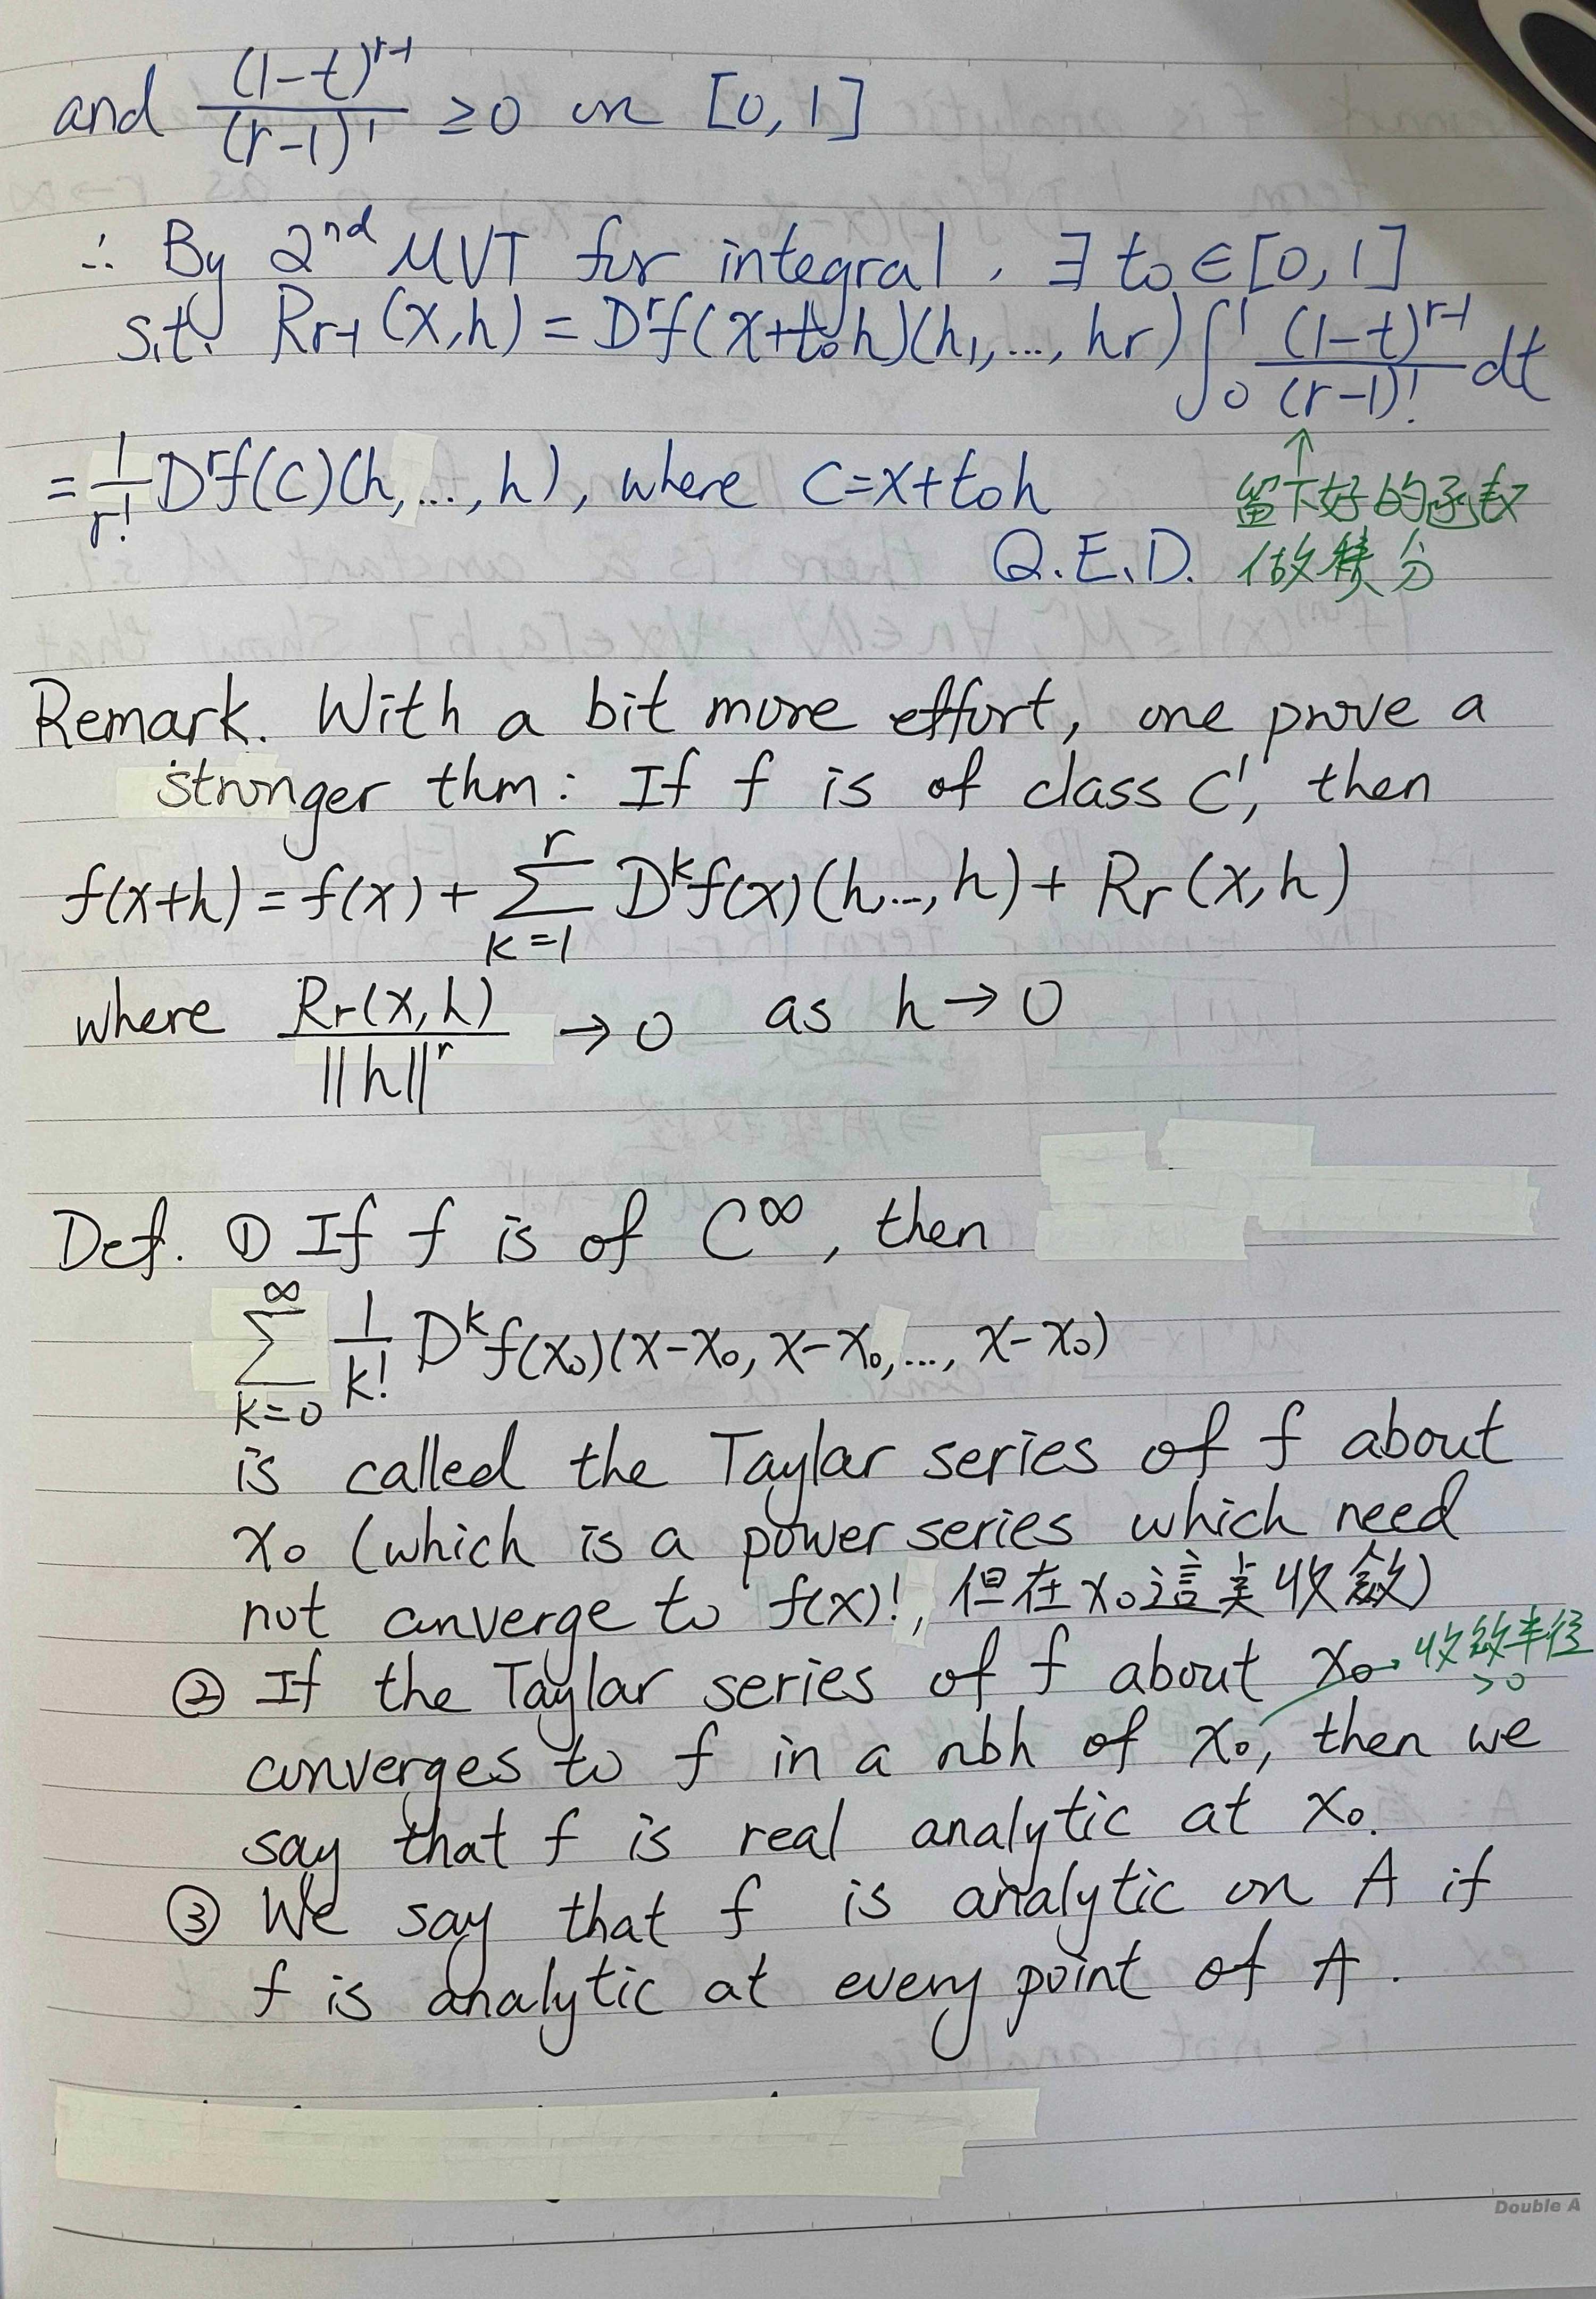 and (1-t)^{r-1}/(r-1)! ≥0 on [0,1]
∴ By 2nd MVT for integral, ∃ t₀∈[0,1]
s.t. R_{r-1}(x,h) = D^r f(x+t₀h)(h₁,...,h_r)∫₀¹ (1-t)^{r-1}/(r-1)! dt
= 1/r! D^r f(c)(h,...,h), where c=x+t₀h
↑
留下好的函数
Q.E.D.
做積分
Remark. With a bit more effort, one prove a
stronger thm: If f is of class C^r, then
f(x+h) = f(x) + ∑_{k=1}^{r} D^k f(x)(h,...,h) + R_r(x,h)
where R_r(x,h)/||h||^r → 0 as h→0
Def. ① If f is of C^∞, then
∑_{k=0}^{∞} 1/k! D^k f(x₀)(x-x₀, x-x₀,..., x-x₀)
is called the Taylar series of f about
x₀ (which is a power series which need
not converge to f(x)!, 但在x₀這点收斂)
② If the Taylar series of f about x₀ → 收斂半径
>0
converges to f in a nbh of x₀, then we
say that f is real analytic at x₀.
③ We say that f is analytic on A if
f is analytic at every point of A.
Double A